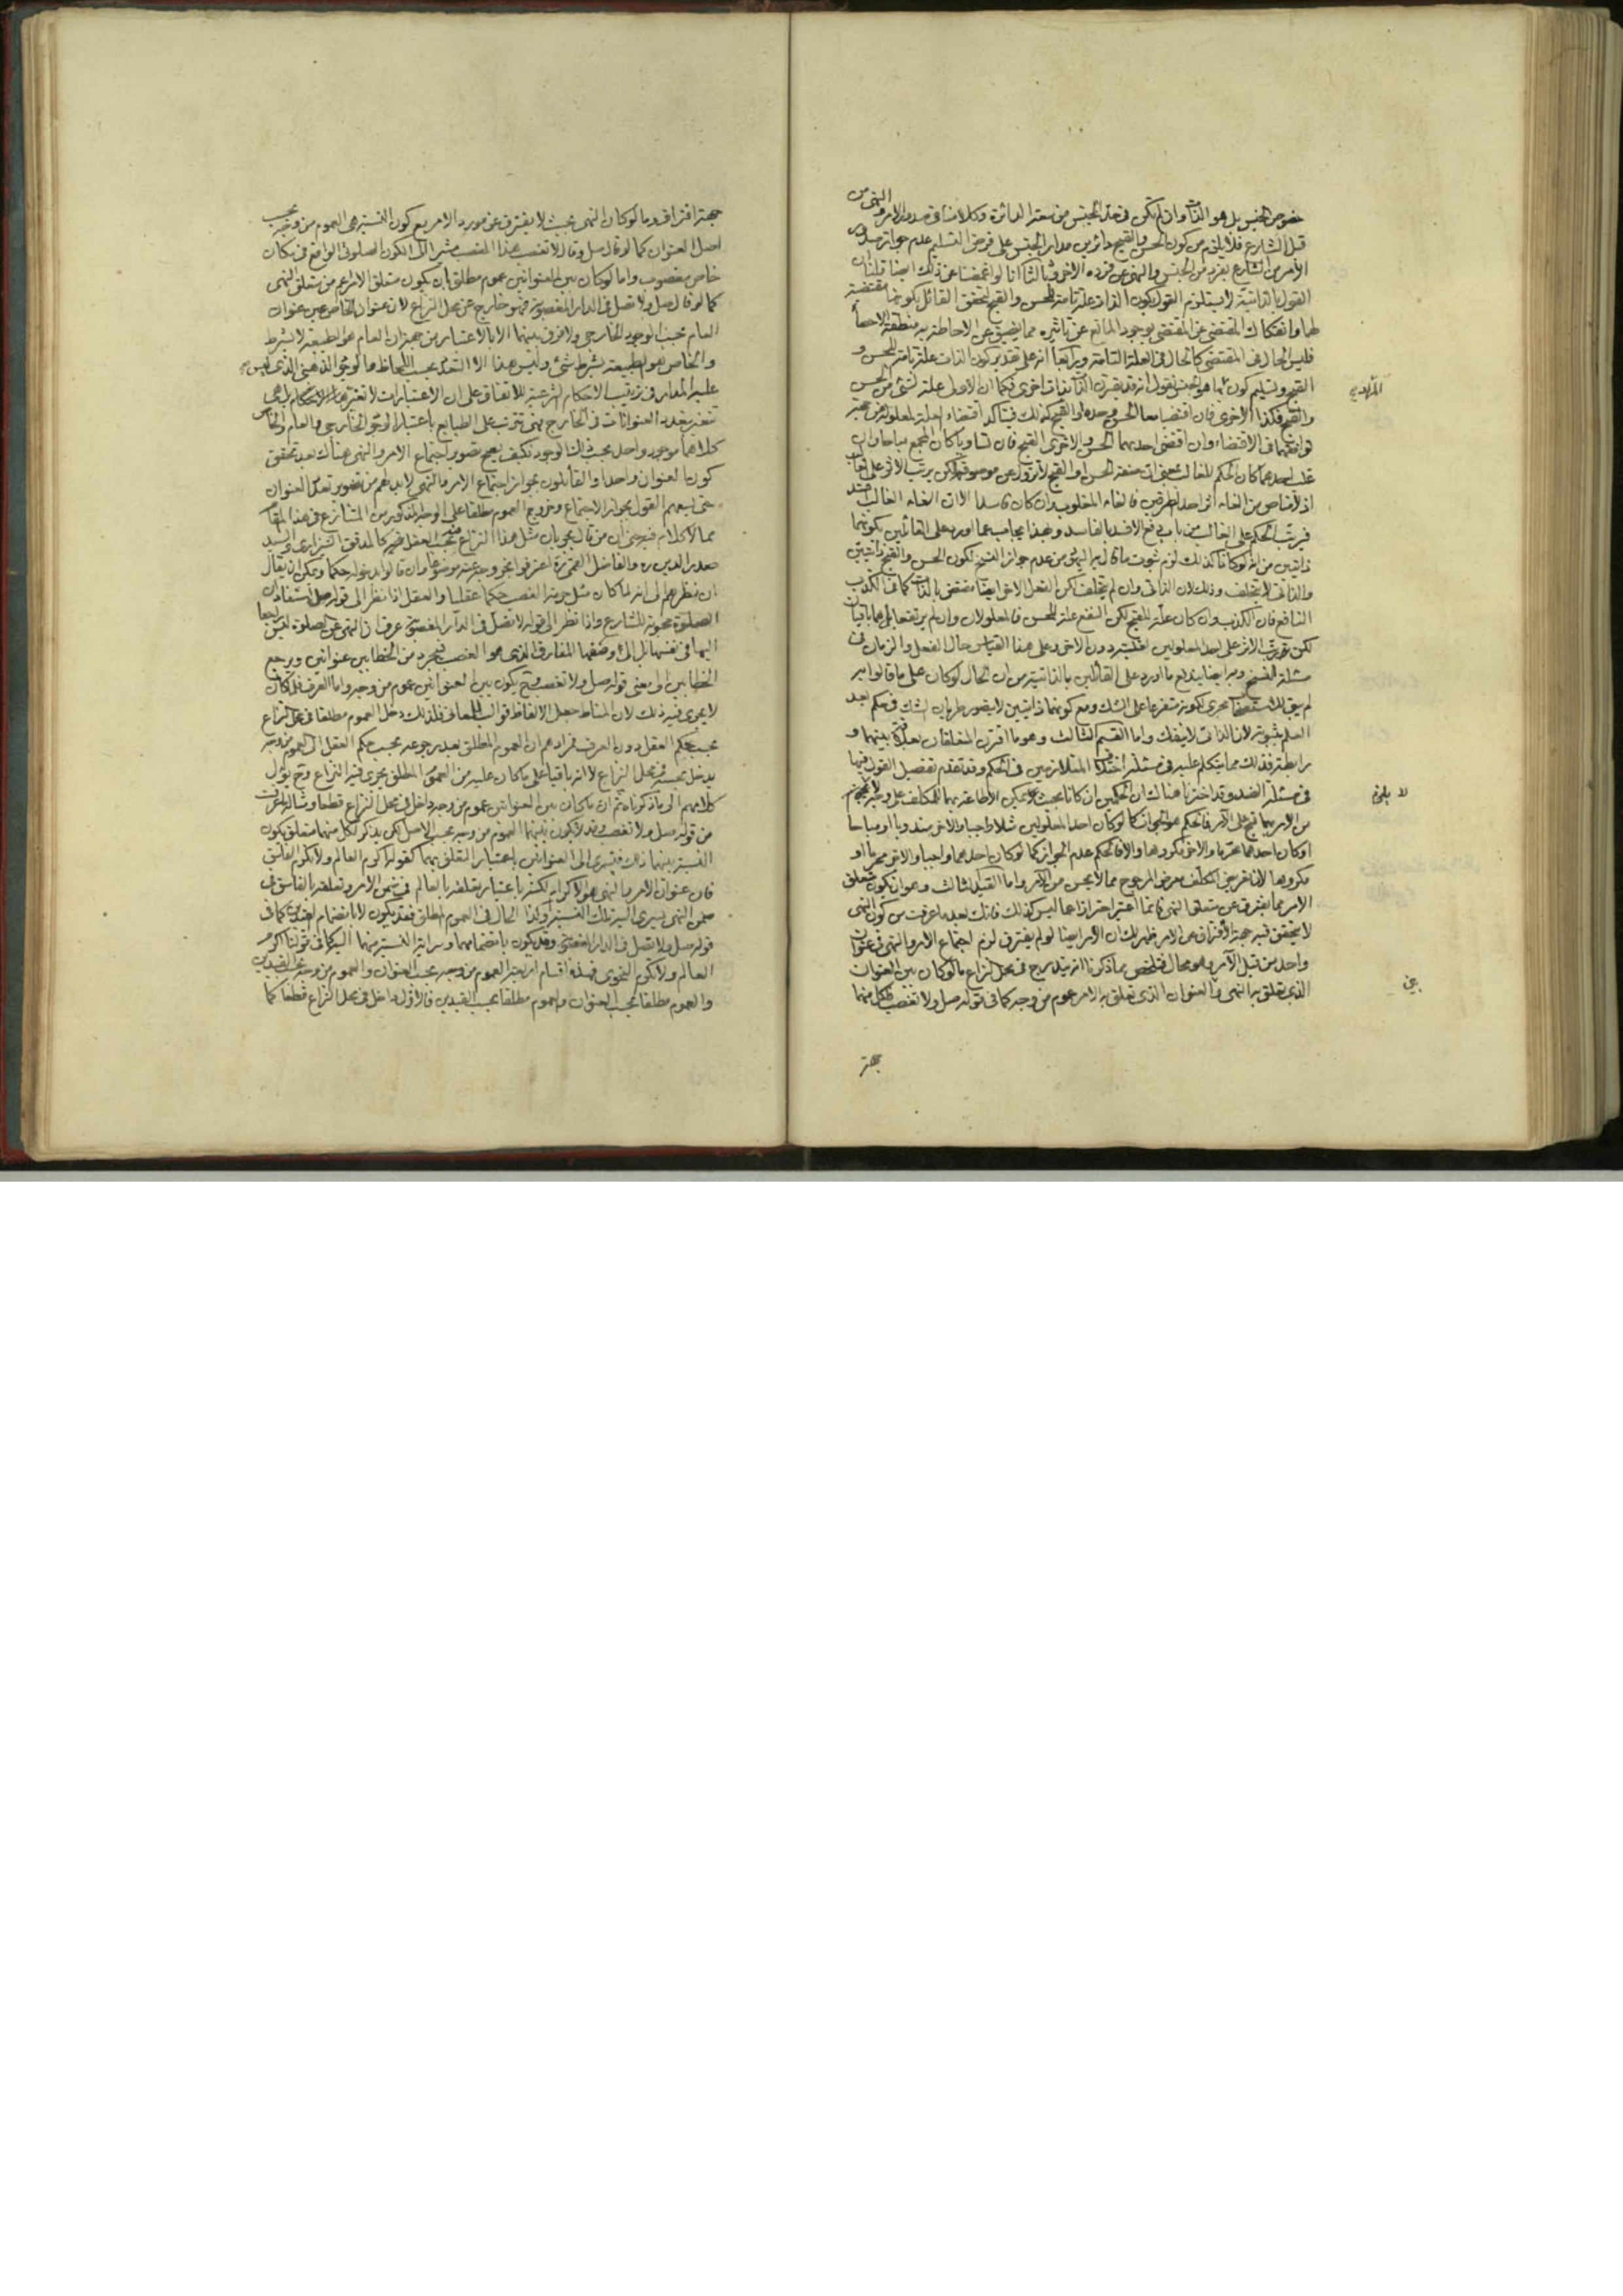 خصوص الجنس بل هو الذات وان لم يكن في هذا الجنس من سعة الدائرة وكلامنا في صدور الامر والنهي من
قبل الشارع فلا يلزم من كون الحسن والقبح دائرين مدار الجنس على فرض التسليم عدم جواز صدور
الأمر من الشارع بفرد من الجنس والنهي عن فرده الاخر وثالثا انا لو اغمضنا عن ذلك ايضا قلنا ان
القول بالذاتية لا يستلزم القول بكون الذات علة تامة للحسن والقبح لتحقق القائل بكونها مقتضية
لها وانفكاك المقتضى عن المقتضي لوجود المانع عن تاثيره مما يضيق عن الاحاطة به منطقة الاحصاء
فليس الحال في المقتضي كالحال في العلة التامة ورابعا انه على تقدير كون الذات علة تامة للحسن و
القبح وتسليم كون ما هو الجنس نقول انه قد يقترن الذات بذات اخرى فكما ان الاولى علة لشئ من الحسن
والقبح فكذا الاخرى فان اقتضيا معا الحسن وحده او القبح كذلك فيتاكد اقتضاء العلة لمعلولها من غير
توافقهما في الاقتضاء وان اقتضى احدهما الحسن والاخرى القبح فان تساويا كان المجمع مباحا وان
غلب احدهما كان الحكم للغالب بمعنى ان صفة الحسن او القبح لا تزول عن موصوفها لكن يرتب الاثر على الغالب
اذ لا مناص من الغاء اثر احد الطرفين فالغاء المغلوب وان كان فاسدا الا ان الغاء الغالب افسد
فيرتب الحكم على الغالب من باب دفع الافسد بالفاسد وبهذا يجاب عما اورد على القائلين بكونهما
ذاتيين من انه لو كانا كذلك لزم ثبوت ما قال به اليهود من عدم جواز النسخ لكون الحسن والقبح ذاتيين
والذاتي لا يتخلف وذلك لان الذاتي وان لم يتخلف لكن الفعل الاخر ايضا مقتضى بالذات كما في الكذب
النافع فان الكذب وان كان علة للقبح لكن النفع علة للحسن فالمعلولان وان لم يرتفعا بل هما باقيان
لكن يترتب الاثر على احد المعلولين لغلبته دون الاخر وعلى هذا القياس حال الفعل والزمان في
مسئلة النسخ وبه ايضا يندفع ما اورد على القائلين بالذاتية من ان الحال لو كان على ما قالوا به
لم يبق للاستصحاب مجرى لكونه متفرعا على الشك ومع كونهما ذاتيين لا يتصور طريان الشك في حكم بعد
العلم بثبوته لان الذاتي لا ينفك واما القسم الثالث وهو ما اقترن المتعلقان بعلاقة بينهما و
رابطة فذلك مما يتكلم عليه في مسئلة اختلاف المتلازمين في الحكم وقد تقدم تفصيل القول فيها
في مسئلة الضد وقد اخترنا هناك ان الحكمين ان كانا بحيث لا يمكن الاطاعة بهما للمكلف على وجه لا يلزم
من الامر بهما قبح على الآمر فالحكم هو الجواز كما لو كان احد المعلولين مثلا واجبا والاخر مندوبا او مباحا
او كان احدهما محرما والاخر مكروها والا فالحكم عدم الجواز كما لو كان احدهما واجبا والاخر محرما او
مكروها لان تعريض المكلف بعرض المرجوح مما لا يحسن من الآمر واما القيد الثالث وهو ان يكون متعلق
الامر مما يفترق عن متعلق النهي فانما اعتبر احترازا عما ليس كذلك فانك بعد ما عرفت من كون النهي
لا يتحقق فيه جهة الافتراق عن الامر ظهر لك ان الامر ايضا لو لم يفترق لزم اجتماع الامر والنهي في عنوان
واحد من قبل الآمر وهو محال فتلخص بما ذكرنا انه يندرج في محل النزاع ما لو كان بين العنوان
الذي تعلق به النهي والعنوان الذي تعلق به الامر عموم من وجه كما في قوله صل ولا تغصب فلكل منهما
لا يلزم
بين
جهة
جهة افتراق وما لو كان النهي بحيث لا يفترق عن مورد الامر مع كون النسبة هي العموم من وجه بحسب
اصل العنوان كما لو قال صل وقال لا تغصب هذا الغصب مشيرا الى الكون الصلوتي الواقع في مكان
خاص مغصوب واما لو كان بين العنوانين عموم مطلق بان يكون متعلق الامر اعم من متعلق النهي
كما لو قال صل ولا تصل في الدار المغصوبة فهو خارج عن محل النزاع لان عنوان الخاص عين عنوان
العام بحسب الوجود الخارجي ولا فرق بينهما الا بالاعتبار من جهة ان العام هو الطبيعة لا بشرط
والخاص هو الطبيعة بشرط شئ وليس هذا الا التعدد بحسب اللحاظ والوجود الذهني الذي ليس هو
عليه المدار في ترتيب الاحكام الشرعية للاتفاق على ان الاعتبارات لا تغير الاحكام بل هي
تتغير بتعدد العنوانات في الخارج فهي تترتب على الطبايع باعتبار الوجود الخارجي والعام والخاص
كلاهما موجود واحد بحسب ذلك الوجود فكيف يصح تصوير اجتماع الامر والنهي هناك بعد تحقق
كون العنوان واحدا والقائلون بجواز اجتماع الامر والنهي لا بد لهم من تصوير تعدد العنوان
حتى يسعهم القول بجواز الاجتماع وخروج العموم مطلقا على الوجه المذكور من المتنازع في هذا المقام
مما لا كلام فيه حتى ان من قال بجريان مثل هذا النزاع بحسب العقل فيه كالمدقق الشيرازي والسيد
صدر الدين ره والفاضل القمي ره اعترفوا بخروجه عنه موضوعا وان قالوا بدخوله حكما ويمكن ان يقال
ان نظرهم الى انه لما كان مثل حرمة الغصب حكما عقليا والعقل اذا نظر الى قوله صل استفاد ان
الصلوة محبوبة للشارع واذا نظر الى قوله لا تصل في الدار المغصوبة عرف ان النهي عن الصلوة ليس راجعا
اليها في نفسها بل الى وصفها المفارق الذي هو الغصب فيجرد من الخطابين عنوانين ويرجع
الخطابين الى معنى قوله صل ولا تغصب وح يكون بين العنوانين عموم من وجه واما العرف فلما كان
لا يجري فيه ذلك لان المناط جعل الالفاظ قوالب للمعاني فلذلك دخل العموم مطلقا في محل النزاع
بحسب حكم العقل دون العرف فمرادهم ان العموم المطلق بعد رجوعه بحسب حكم العقل الى العموم من وجه
يدخل بحسبه في محل النزاع لا انه باقيا على ما كان عليه من العموم المطلق يجري فيه النزاع وح يؤل
كلامهم الى ما ذكرناه ثم ان ما كان بين العنوانين عموم من وجه داخل في محل النزاع قطعا ومثاله ما عرفت
من قوله صل ولا تغصب وقد لا يكون بينهما العموم من وجه بحسب الاصل لكن يذكر لكل منهما متعلق يكون
النسبة بينهما ذلك فيسري الى العنوانين باعتبار التعلق بهما كقوله اكرم العالم ولا تكرم الفاسق
فان عنوان الامر والنهي هو الاكرام لكنه باعتبار تعلقه بالعالم في ضمن الامر وتعلقه بالفاسق في
ضمن النهي يسري اليه تلك النسبة وكذا الحال في العموم المطلق فقد يكون لا بانضمام القيدين كما في
قوله صل ولا تصل في الدار المغصوبة وقد يكون بانضمامهما وسراية النسبة منهما اليه كما في قولنا اكرم
العالم ولا تكرم النحوي فهذه اقسام اربعة العموم من وجه بحسب العنوان والعموم من وجه بحسب القيدين
والعموم مطلقا بحسب العنوان والعموم مطلقا بحسب القيدين فالاول داخل في محل النزاع قطعا كما